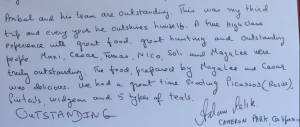 Anibal and his team are outstanding. This was my third
trip and every year he outshines himself. A true high class
experience with great food, great hunting and outstanding
people. Maxi, Caesar, Tomas, Nico, Sol and Magalee were
truly outstanding. The food, prepared by Magalee and Caesar
was delicious. We had a great time shooting Picassos (Rosies),
Pintails, widgeon and 5 types of teals.
OUTSTANDING
CAMERON PARK, California